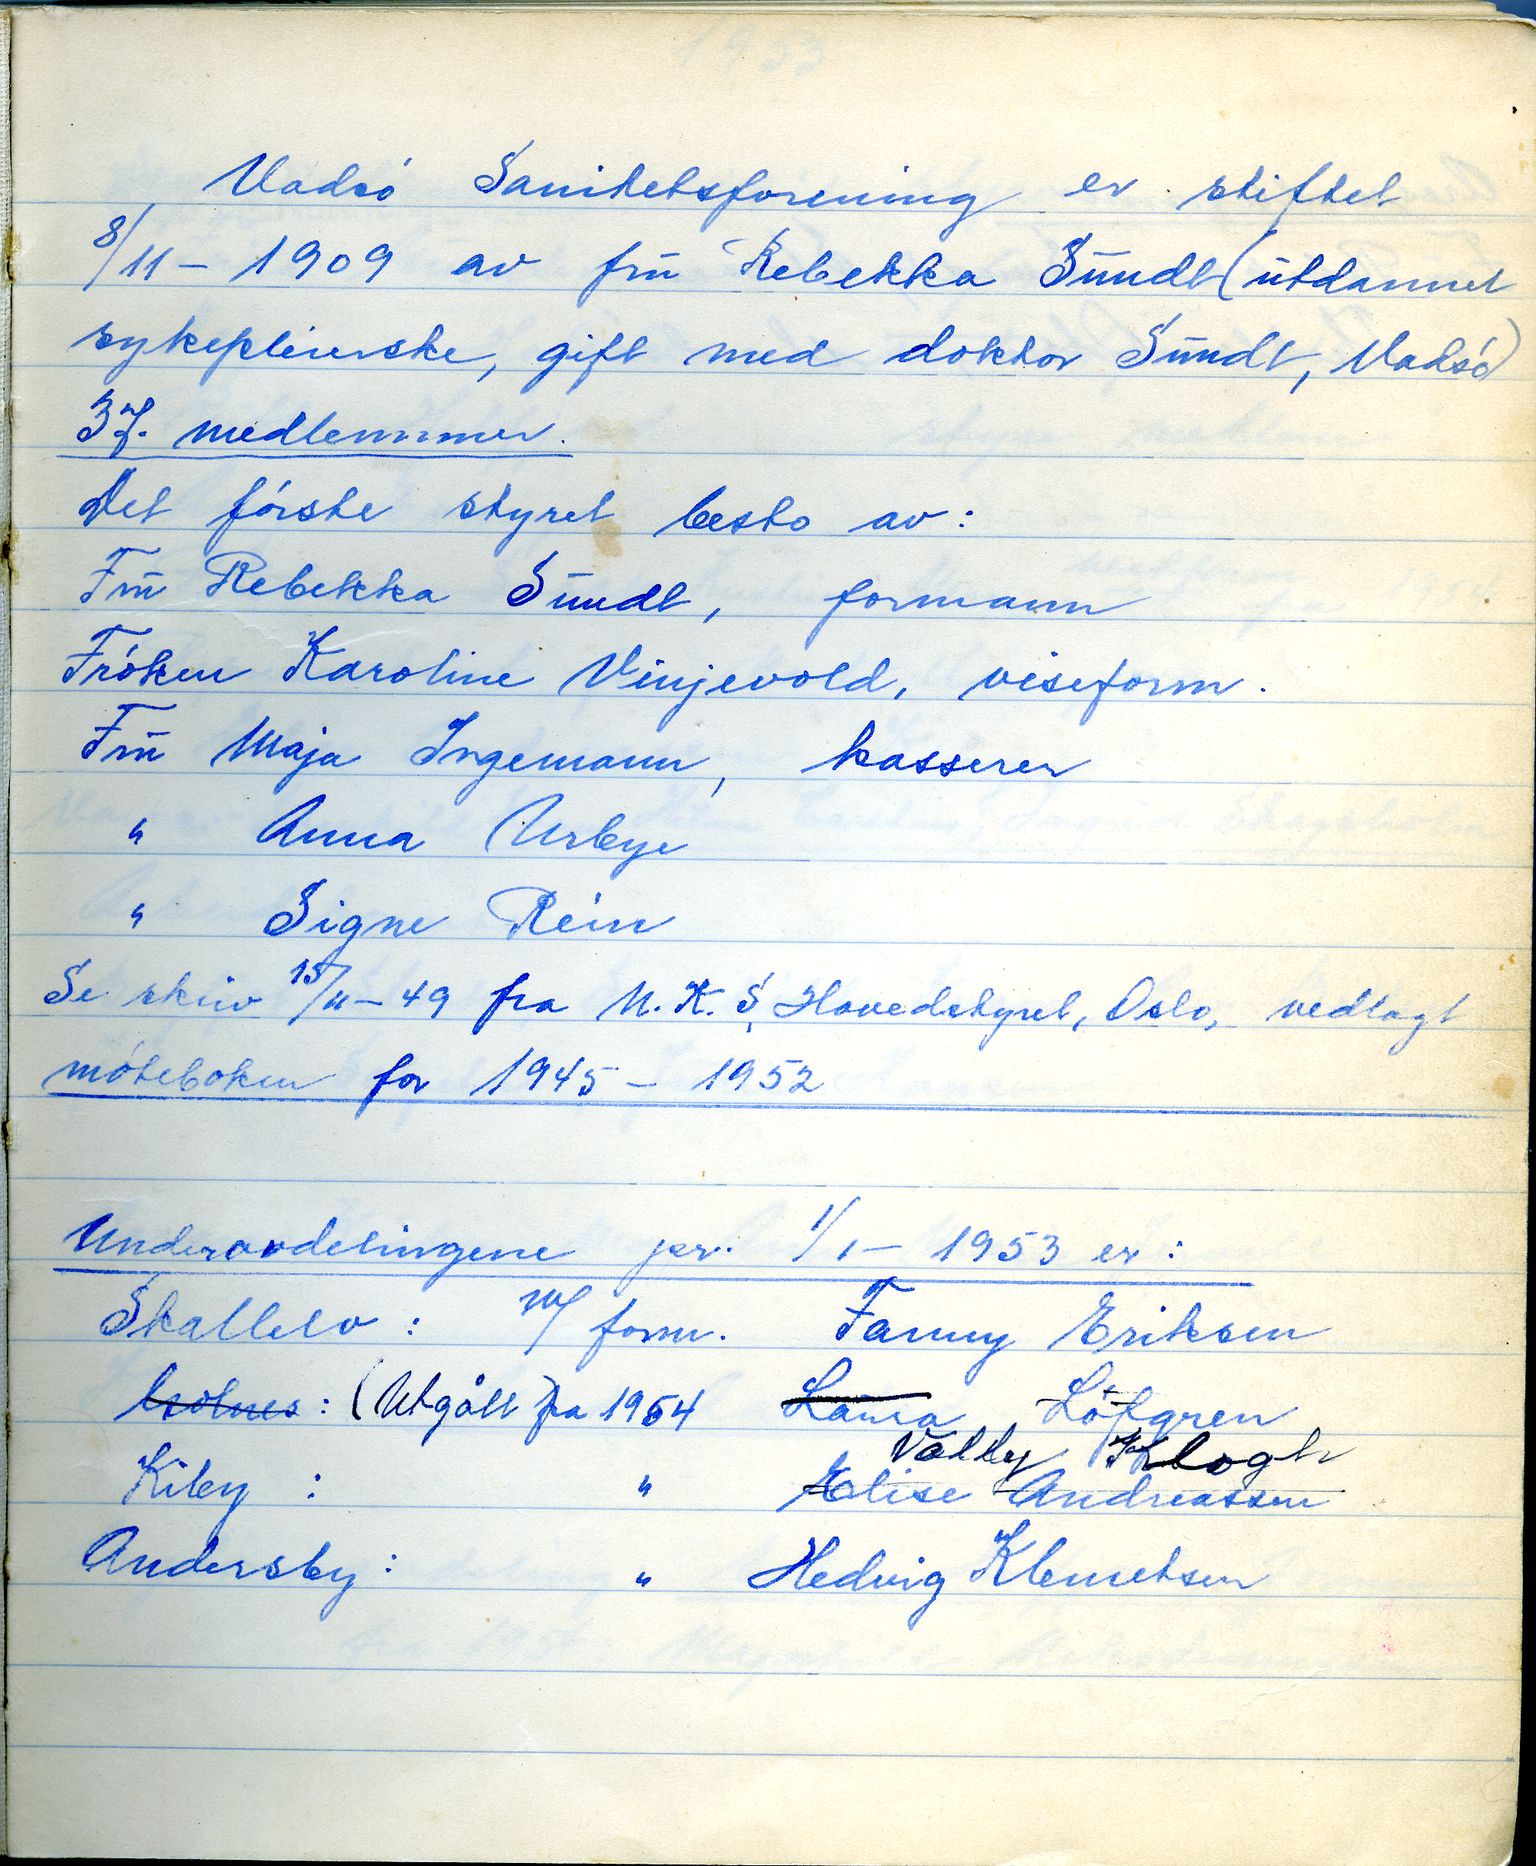 Vadsó Sanitetsforening er stiftet
8/11 - 1909 av frū Rebekka Sūndt (ūtdannet
sykepleierske, gift med doktor Sūndt, Vadsó)
37. medlemmer.
Det fórste styret besto av:
Frū Rebekka Sūndt, formann
Fróken Karoline Vinjevold, viseform.
Frū Maja Ingemann, kasserer
" Anna Urbye
" Signe Rein
Se skriv 15/11 - 49 fra N.K.S, Hovedstyret, Oslo, vedlagt
móteboken for 1945 - 1952
Underavdelingene pr. 1/1 - 1953 er:
Skallelv : m/ form. Fanny Eriksen
: (Utgått) fra 1954 Laura Löfgren
Vally Klogh
Kiby : " Elise Andreassen
Andersby : " Hedvig Klemetsen